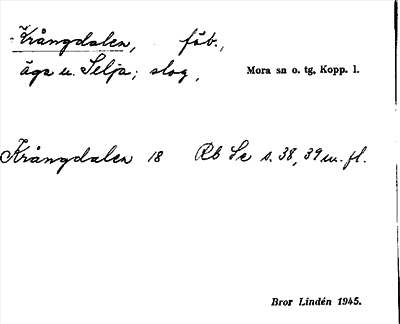 Krångdalen, fäb.,
äga u. Selja; slog, Mora sn o. tg, Kopp. l.
Krångdalen 18 Rb Se s. 38, 39 m. fl.
Bror Lindén 1945.